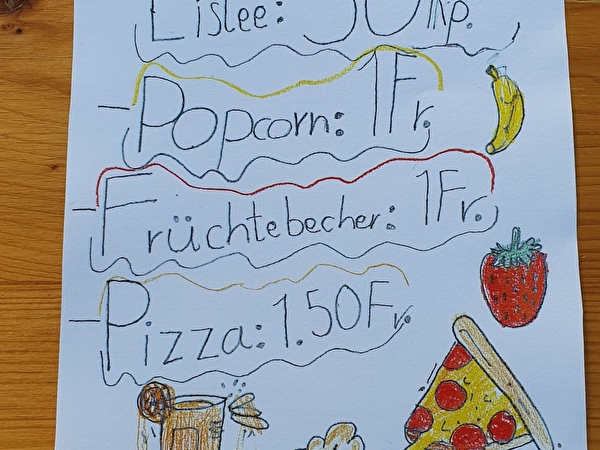 Eistee: 50 Rp.
- Popcorn: 1 Fr.
- Früchtebecher: 1 Fr.
- Pizza: 1.50 Fr.